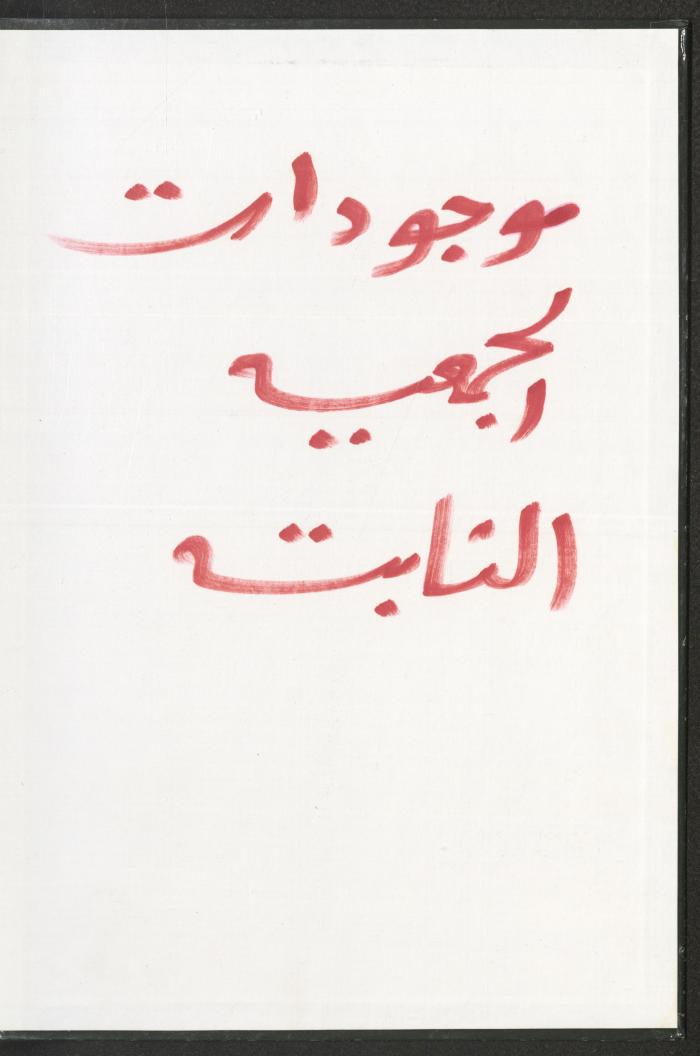 موجودات
الجمعيه
الثابته